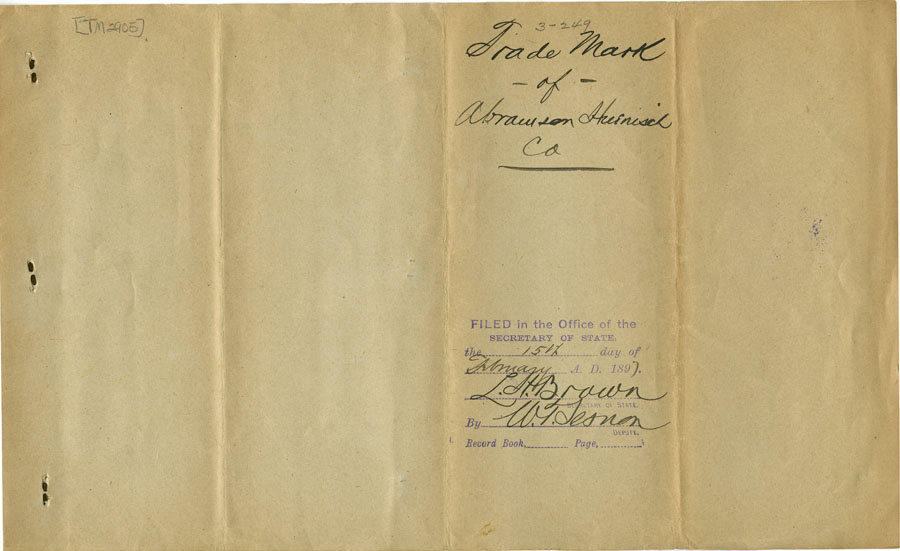 [TM2905]
3-249
Trade Mark
- of -
Abramson Heunisch
Co
FILED in the Office of the
SECRETARY OF STATE,
the 15th day of
February A. D. 1897.
L. H. Brown
SECRETARY OF STATE.
By W. T. Sesnon
DEPUTY.
Record Book, Page,